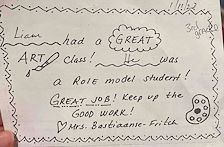 3rd grader
Liam had a GREAT
ART class! He was
a ROLE model student!
GREAT JOB! Keep up the
GOOD WORK!
Mrs. Bastiaanse-Fritch